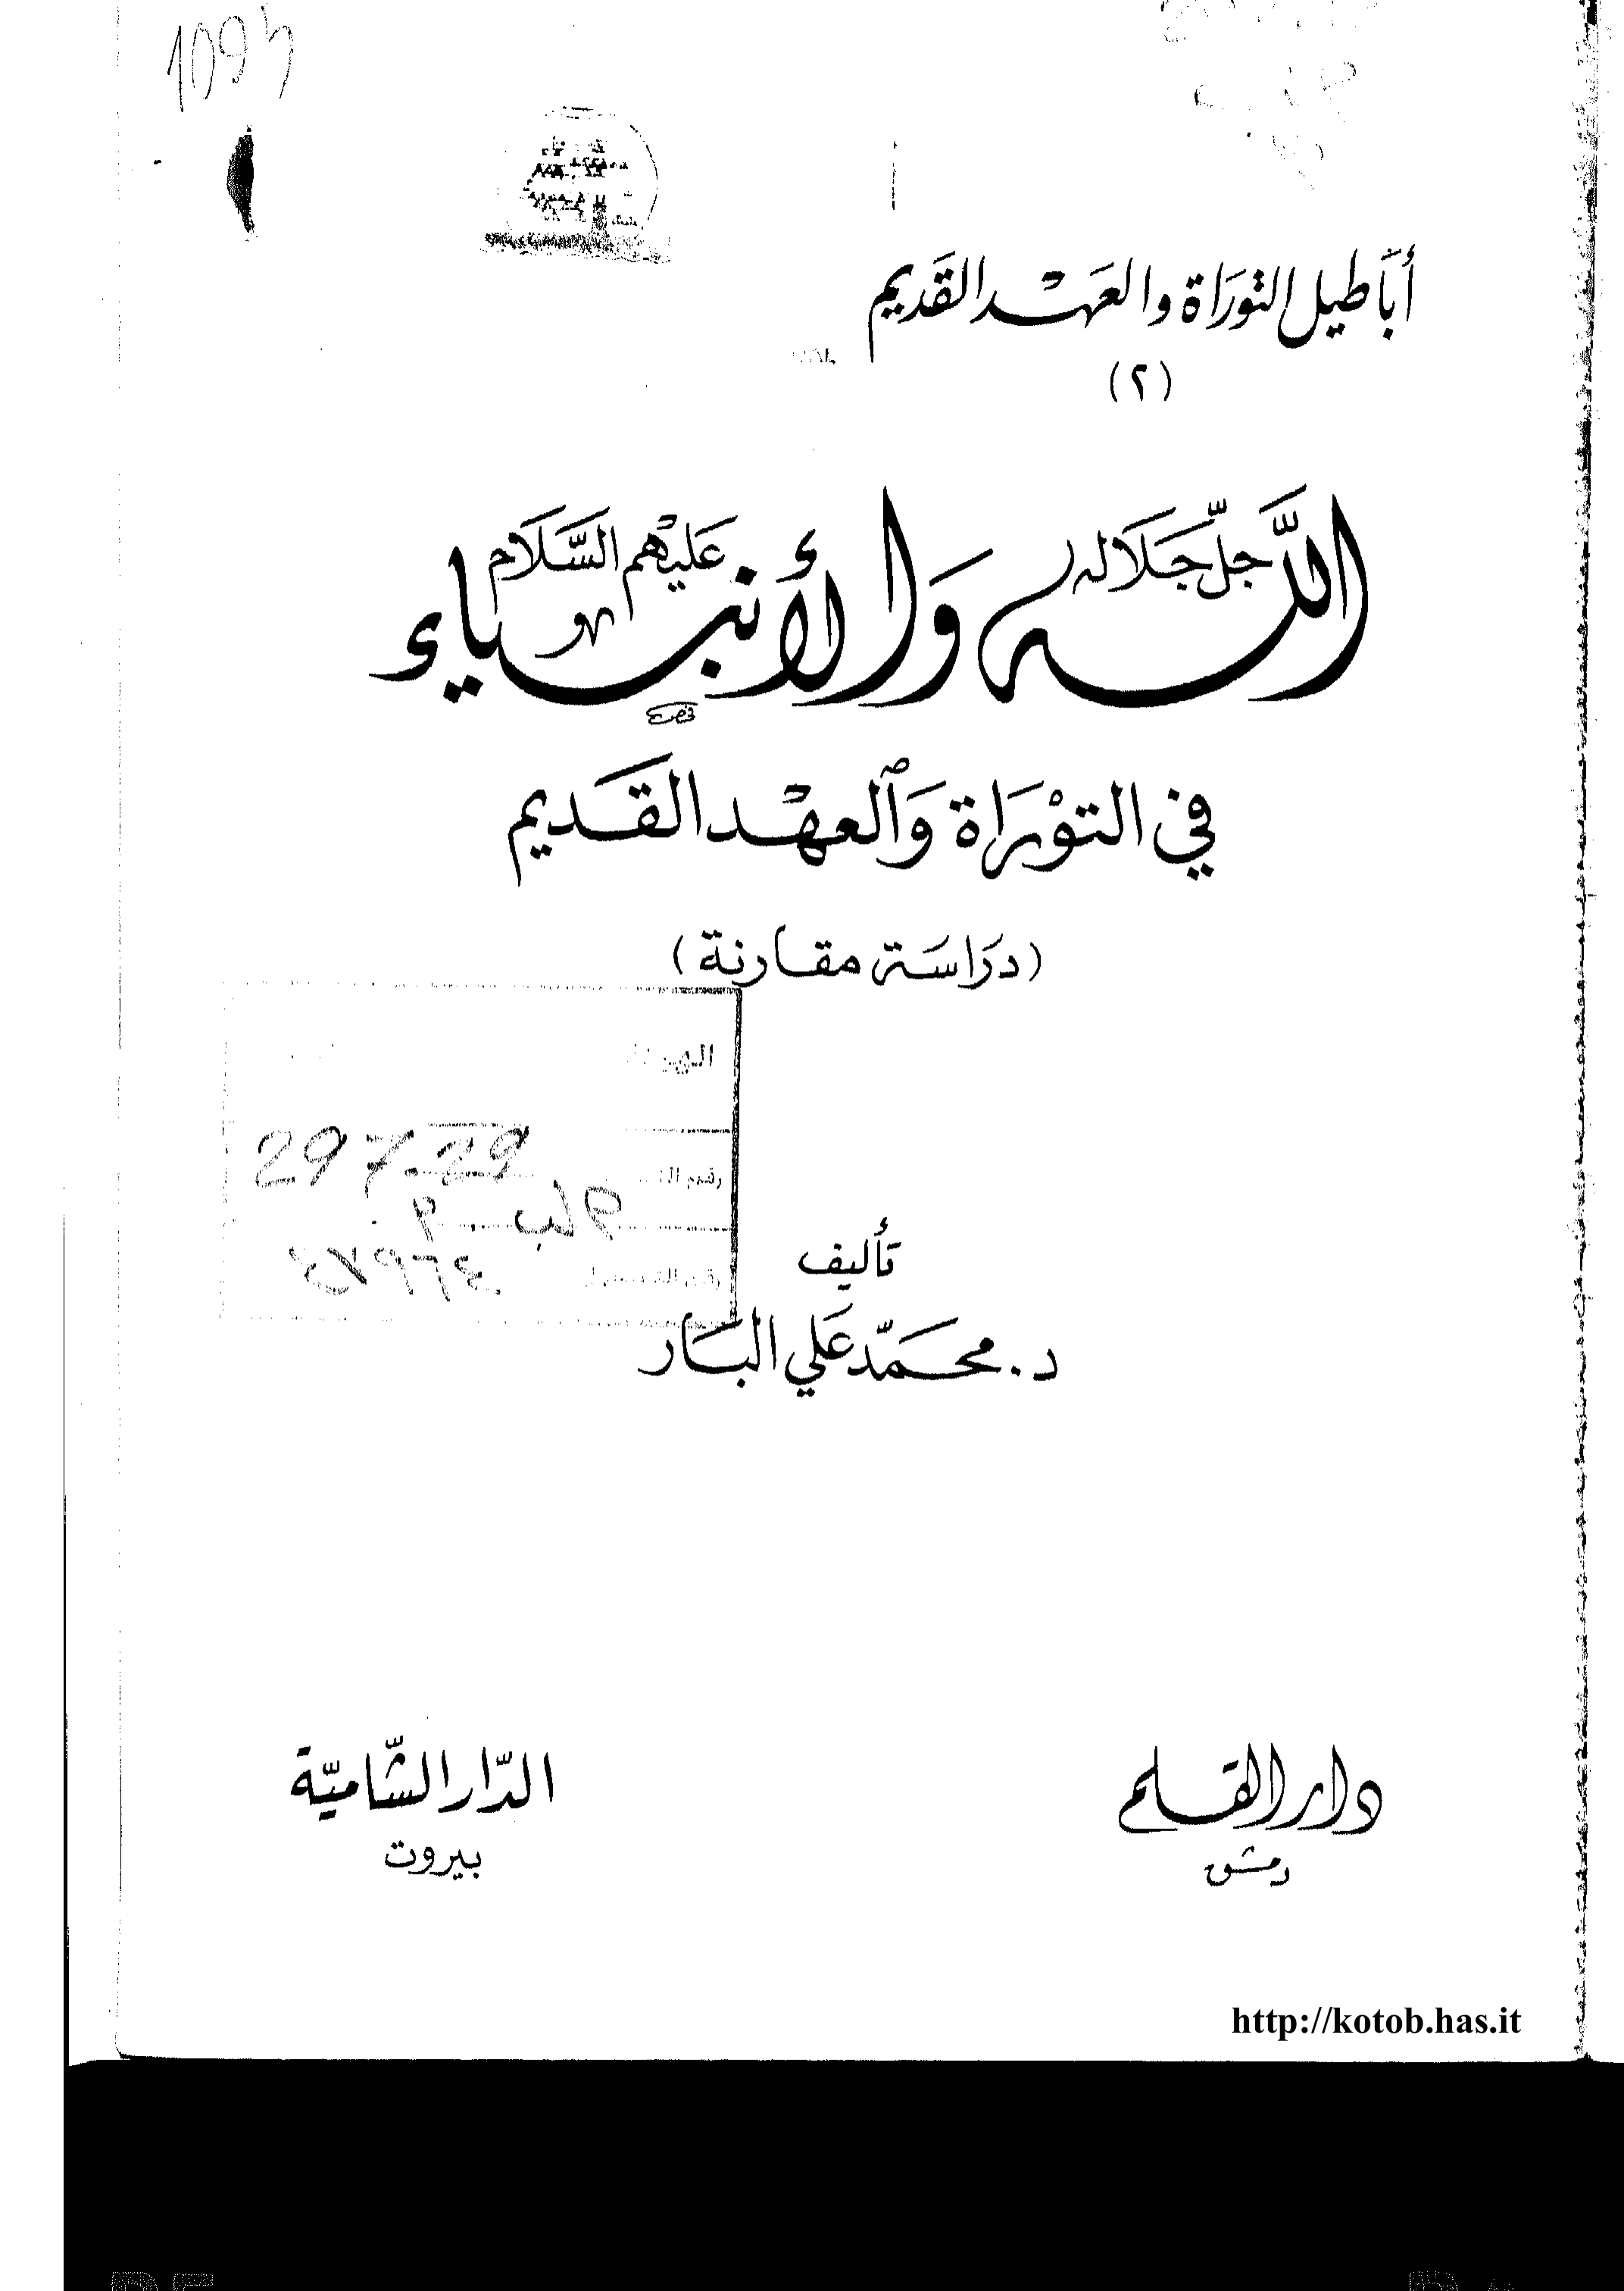 1094
أبَاطيل التورَاة والعَهْد القَديم
(٢)
اللَّه جلّ جَلَاله وَالأنبياء عَليْهم السَّلَام
في التوْرَاة وَالعهْد القَديم
(درَاسَة مقارنة)
297.29
تأليف
د. محمّد عَلي البَار
دار القلم
دمشق
الدّار الشّاميّة
بيروت
http://kotob.has.it